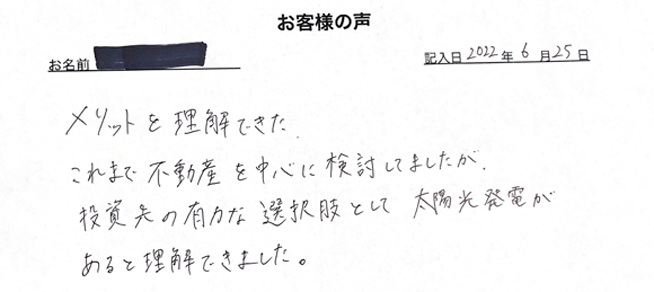 お客様の声
お名前 記入日 2022年 6月25日
メリットを理解できた.
これまで不動産を中心に検討してましたが.
投資先の有力な選択肢として 太陽光発電が
あると理解できました。